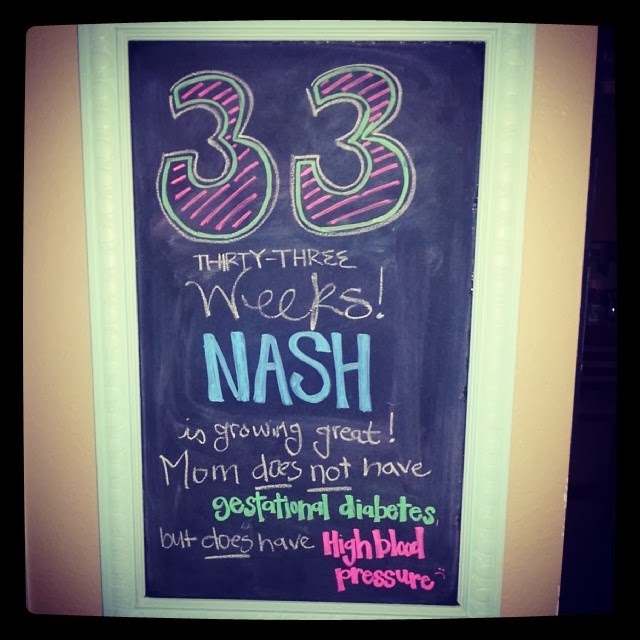 33
THIRTY-THREE
Weeks!
NASH
is growing great!
Mom does not have
gestational diabetes,
but does have High blood
pressure